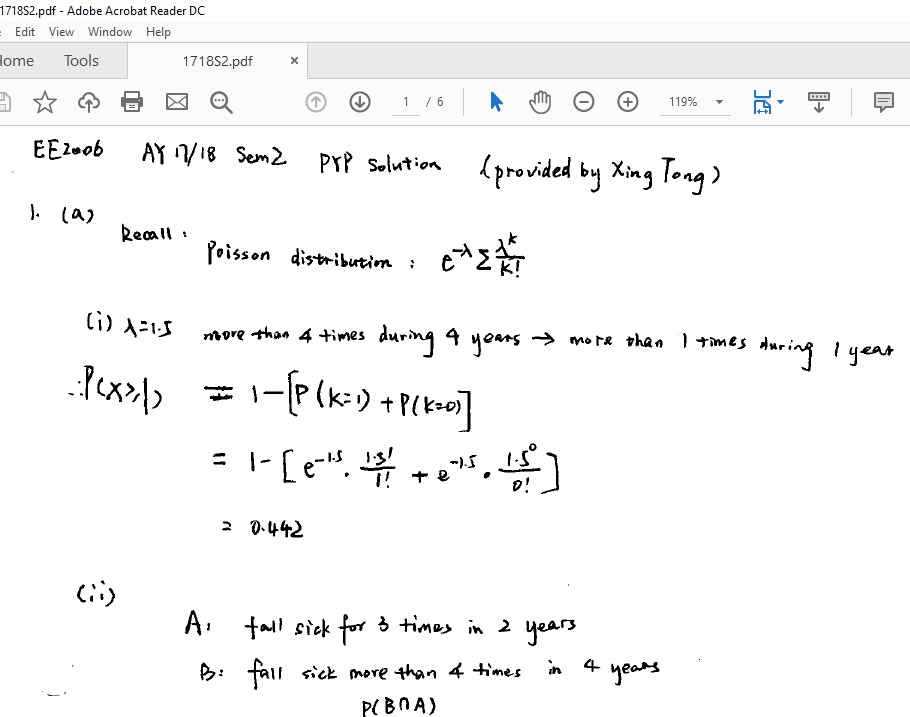 1718S2.pdf - Adobe Acrobat Reader DC
Edit View Window Help
Home Tools 1718S2.pdf ×
1 / 6 119%
EE2006 AY 17/18 Sem2 PYP Solution (provided by Xing Tong)
1. (a)
Recall :
Poisson distribution : e^-λ Σ λ^k/k!
(i) λ=1.5 more than 4 times during 4 years → more than 1 times during 1 year
∴P(X>,1) = 1-[P(k=1)+P(k=0)]
= 1-[e^-1.5 · 1.5^1/1! + e^-1.5 · 1.5^0/0!]
= 0.442
(ii)
A: fall sick for 3 times in 2 years
B: fall sick more than 4 times in 4 years
P(B∩A)